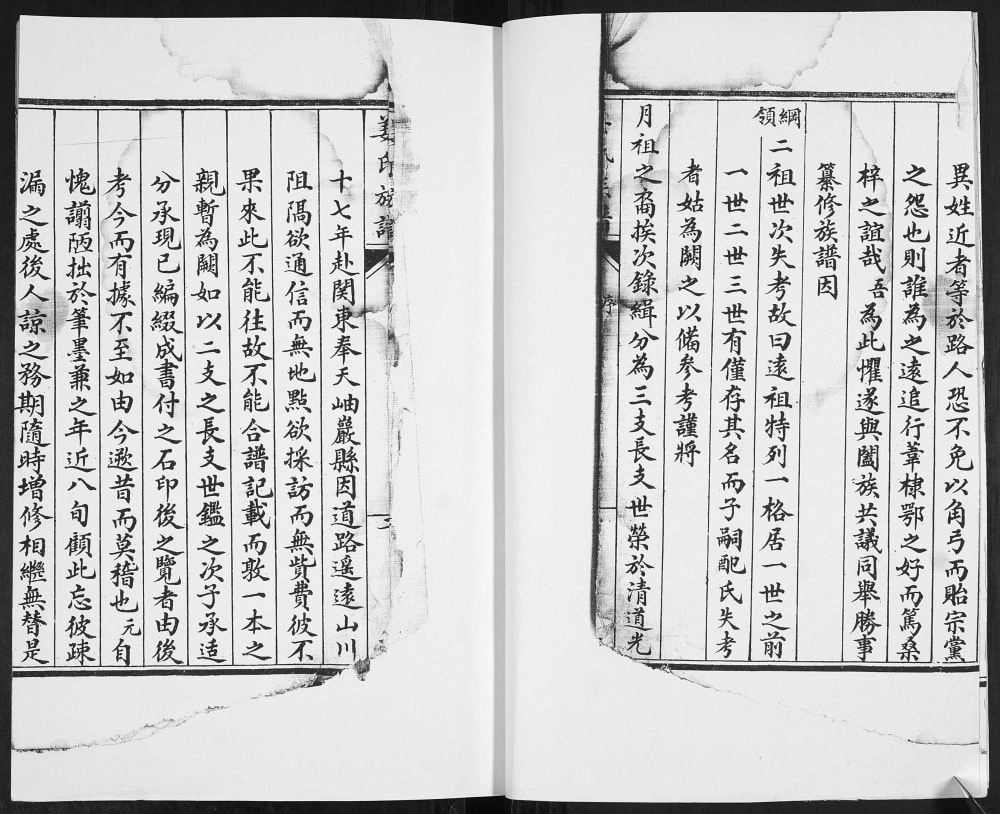 異姓近者等於路人恐不免以角弓而貽宗黨
之怨也則誰為之遠追行葦棣鄂之好而篤桑
梓之誼哉吾為此懼遂與闔族共議同舉勝事
纂修族譜因
綱領
二祖世次失考故曰遠祖特列一格居一世之前
一世二世三世有僅存其名而子嗣配氏失考
者姑為闕之以備參考謹將
月祖之裔挨次錄緝分為三支長支世榮於清道光
序
姜氏族譜
十七年赴関東奉天岫巖縣因道路遙遠山川
阻隔欲通信而無地點欲採訪而無貲費彼不
果來此不能往故不能合譜記載而敦一本之
親暫為闕如以二支之長支世鑑之次子承适
分承現已編綴成書付之石印後之覽者由後
考今而有據不至如由今遡昔而莫稽也元自
愧謭陋拙於筆墨兼之年近八旬顧此忘彼疎
漏之處後人諒之務期隨時增修相繼無替是